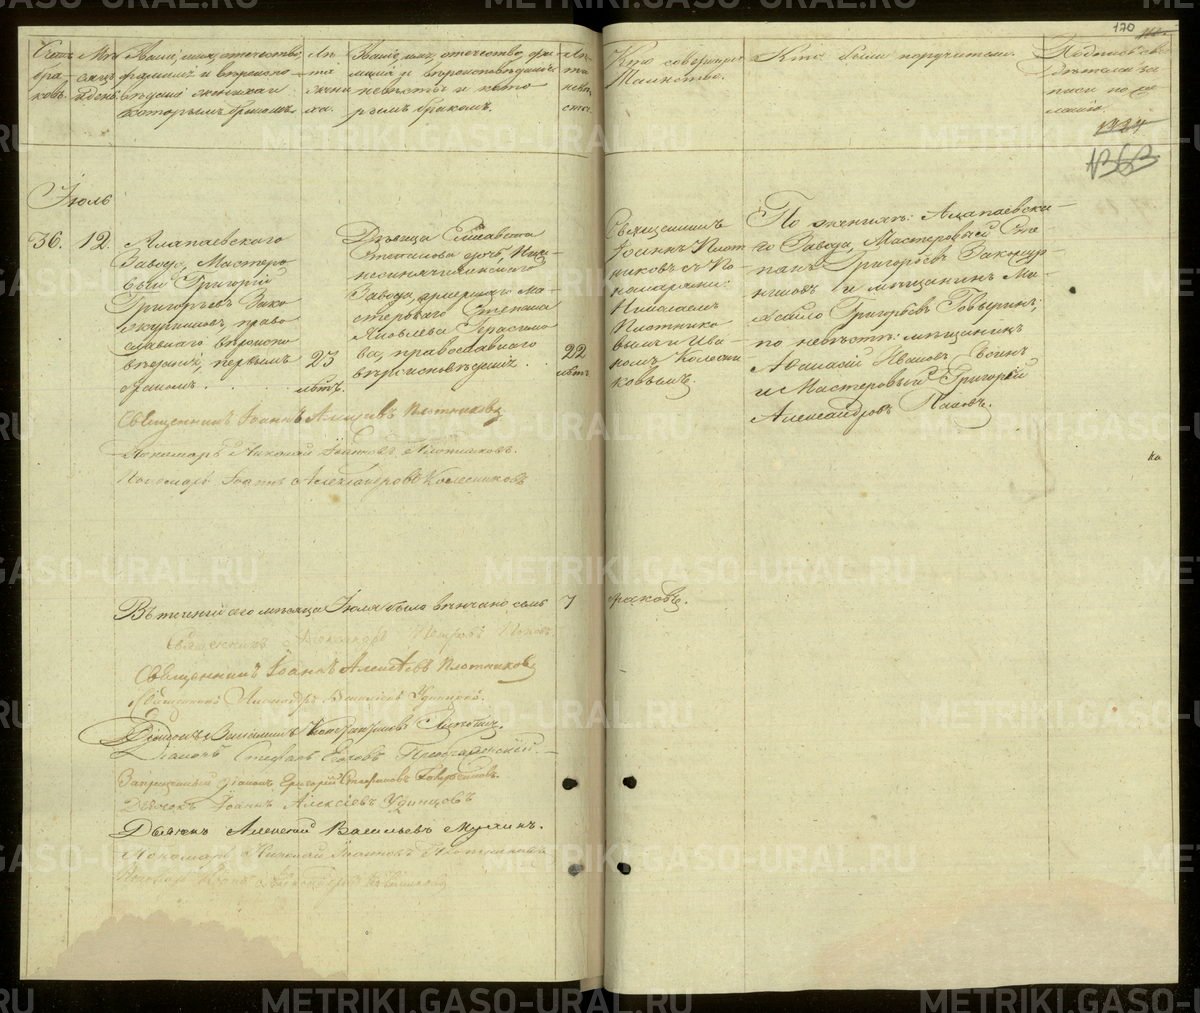 170
Счетъ бра-
ковъ.
Мѣ-
сяцъ
и день.
Званіе, имя, отечество,
фамилія и вѣроиспо-
вѣданіе жениха и
которымъ бракомъ.
Лѣ-
та
жени-
ха.
Званіе, имя, отечество, фа-
милія и вѣроисповѣданіе
невѣсты и кото-
рымъ бракомъ.
Лѣ-
та
невѣ-
сты.
Кто совершалъ
Таинство.
Кто были поручители.
Подпись сви-
дѣтелей за-
писи по же-
ланію.
1363.
Іюль
36.
12.
Алапаевскаго
Завода, Мастеро
вый Григорій
Григорьевъ Зако
журниковъ, право
славнаго вѣроиспо
вѣданія, первымъ
бракомъ.
23
лѣтъ.
Дѣвица Елисавета
Степанова дочь, Ниж-
несинячихинскаго
Завода, умершаго Ма-
стероваго Степана
Яковлева Герасимо
ва, православнаго
вѣроисповѣданія.
22
лѣтъ
Священникъ
Іоаннъ Плот
никовъ съ По
номарями:
Николаемъ
Плотнико
вымъ и Ива
номъ Колесни
ковымъ.
По женихѣ: Алапаевска-
го Завода, Мастеровый Сте
панъ Григорьевъ Закожур
никовъ и мѣщанинъ Ми-
хайло Григорьевъ Говырин;
по невѣстѣ: мѣщанинъ
Афанасій Ивановъ
и Мастеровый Григорій
Александровъ
Священникъ Іоаннъ Алексѣевъ Плотниковъ
Пономарь Николай Плотниковъ.
Пономарь Іоаннъ Александровъ Колесниковъ
Въ теченіи сего мѣсяца Іюля было вѣнчано семь 7 браковъ.
Священникъ Александръ Петровъ Поповъ
Священникъ Іоаннъ Алексѣевъ Плотниковъ
Священникъ Александръ Васильевъ Удинцовъ.
Діаконъ Стефанъ
Запрещенный діаконъ Григорій Стефановъ
Дьячекъ Іоаннъ Алексіевъ Удинцовъ
Дьячекъ Алексѣй Васильевъ Мухинъ.
Пономарь Николай Плотниковъ
Пономарь Іоаннъ Александровъ Колесниковъ
METRIKI.GASO-URAL.RU